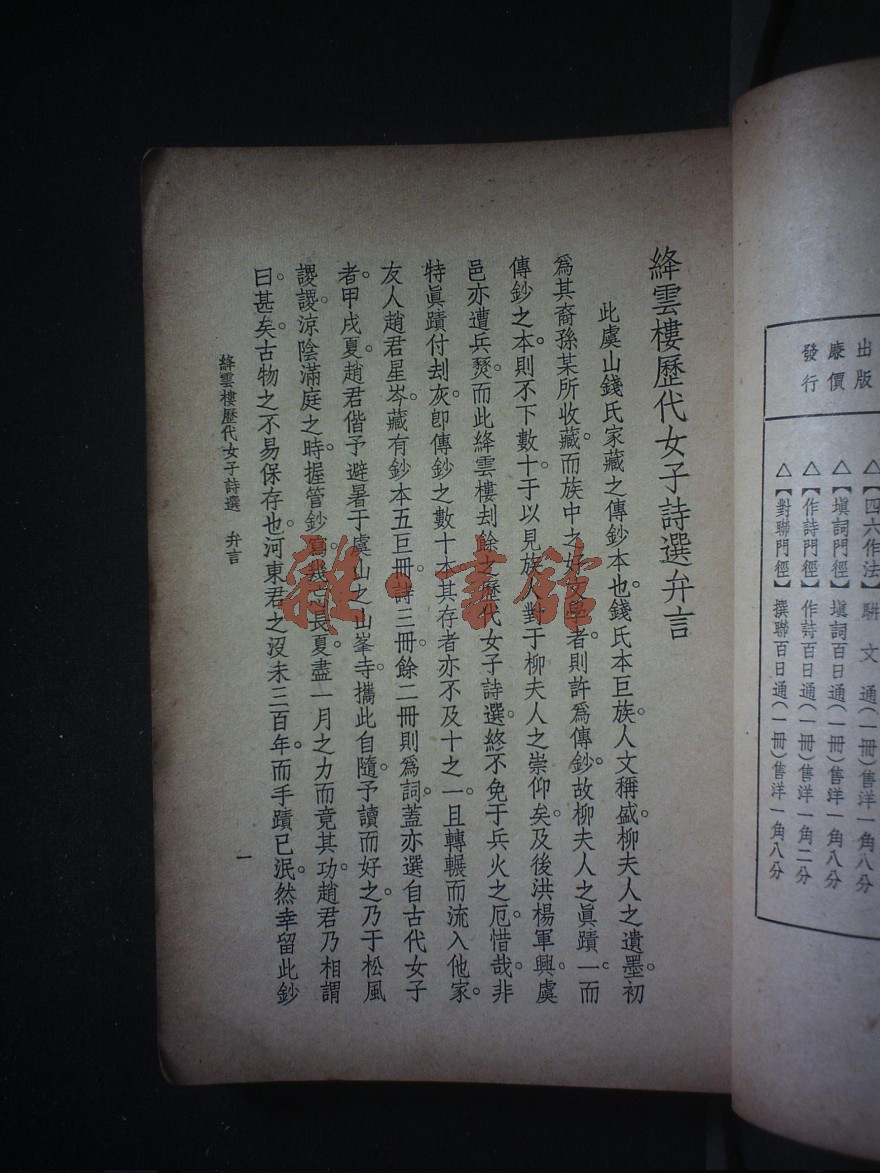 出版
廉價
發行
△【四六作法】駢文通(一冊)售洋一角八分
△【填詞門徑】填詞百日通(一冊)售洋一角八分
△【作詩門徑】作詩百日通(一冊)售洋一角二分
△【對聯門徑】撰聯百日通(一冊)售洋一角八分
絳雲樓歷代女子詩選弁言
此虞山錢氏家藏之傳鈔本也。錢氏本巨族。人文稱盛。柳夫人之遺墨。初
爲其裔孫某所收藏。而族中之好文學者。則許爲傳鈔。故柳夫人之眞蹟一。而
傳鈔之本。則不下數十。于以見族人對于柳夫人之崇仰矣。及後洪楊軍興。虞
邑亦遭兵燹。而此絳雲樓刦餘之歷代女子詩選。終不免于兵火之厄。惜哉。非
特眞蹟付刦灰。卽傳鈔之數十本。其存者亦不及十之一。且轉輾而流入他家。
友人趙君星岑。藏有鈔本五巨冊。詩三冊。餘二冊則爲詞。蓋亦選自古代女子
者。甲戌夏。趙君偕予避暑于虞山之山峯寺。攜此自隨。予讀而好之。乃于松風
謖謖。涼陰滿庭之時。握管鈔寫。幾以長夏盡一月之力而竟其功。趙君乃相謂
曰。甚矣。古物之不易保存也。河東君之沒未三百年。而手蹟已泯。然幸留此鈔
絳雲樓歷代女子詩選 弁言
一
雜·書館